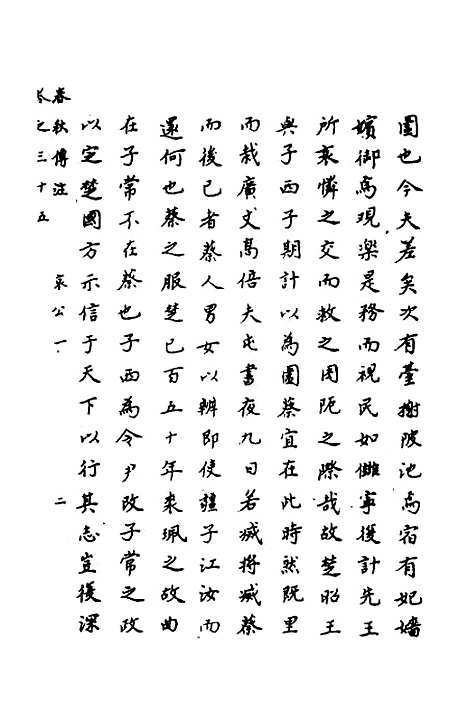 圉也今夫差矣次有臺榭陂池焉宿有妃嬙
嬪御焉現樂是務而視民如讎寧後計先王
所哀憐之交而救之困阨之際哉故楚昭王
與子西子期計以為圉蔡宜在此時然既里
而栽廣丈高倍夫屯晝夜九日若滅將滅蔡
而後已者蔡人男女以辨即使疆于江汝而
還何也蔡之服楚已百五十年裘珮之故曲
在子常不在蔡也子西為令尹改子常之政
以定楚國方示信于天下以行其志豈復深
春秋傳注 哀公一 二
卷之三十五